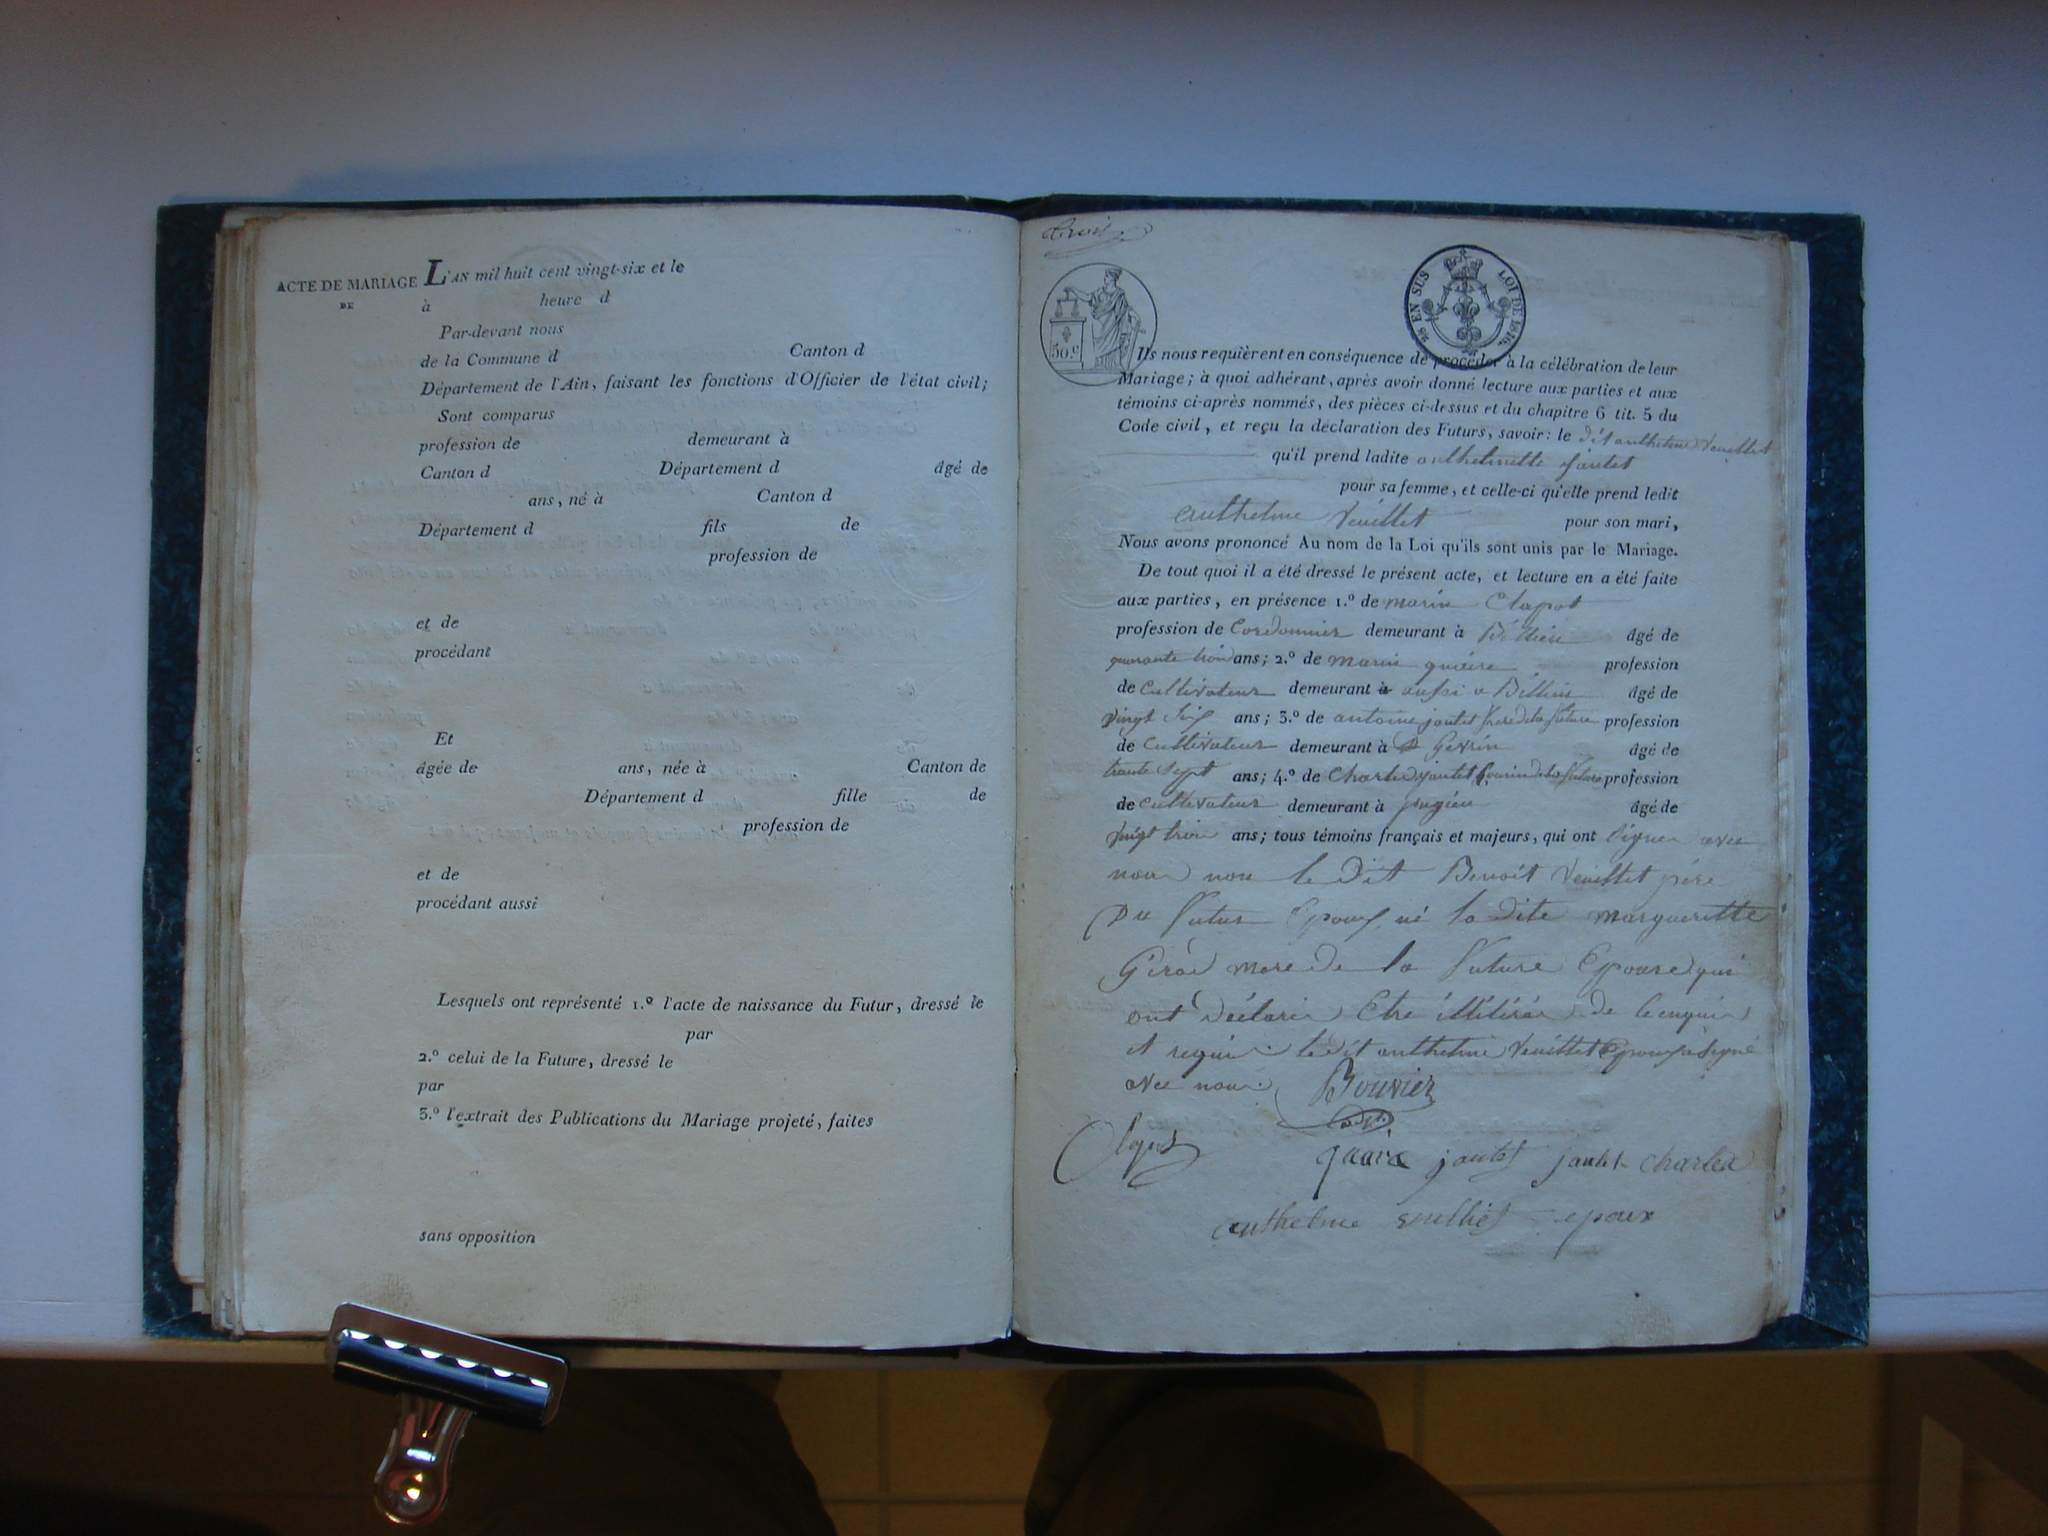 ACTE DE MARIAGE
DE
L'AN mil huit cent vingt-six et le
à heure d
Par-devant nous
de la Commune d Canton d
Département de l'Ain, faisant les fonctions d'Officier de l'état civil;
Sont comparus
profession de demeurant à
Canton d Département d âgé de
ans, né à Canton d
Département d fils de
profession de
et de
procédant
Et
âgée de ans, née à Canton de
Département d fille de
profession de
et de
procédant aussi
Lesquels ont représenté 1.º l'acte de naissance du Futur, dressé le
par
2.º celui de la Future, dressé le
par
3.º l'extrait des Publications du Mariage projeté, faites
sans opposition
trois
50.c
EN SUS LOI DE 1816.
Ils nous requièrent en conséquence de procéder à la célébration de leur
Mariage; à quoi adhérant, après avoir donné lecture aux parties et aux
témoins ci-après nommés, des pièces ci-dessus et du chapitre 6 tit. 5 du
Code civil, et reçu la déclaration des Futurs, savoir: le dit anthelme Veuillet
qu'il prend ladite anthelmette jautet
pour sa femme, et celle-ci qu'elle prend ledit
anthelme Veuillet pour son mari,
Nous avons prononcé Au nom de la Loi qu'ils sont unis par le Mariage.
De tout quoi il a été dressé le présent acte, et lecture en a été faite
aux parties, en présence 1.º de marin Clapot
profession de Cordonnier demeurant à Billieu âgé de
quarante trois ans; 2.º de marin profession
de Cultivateur demeurant à aussi a Billieu âgé de
vingt six ans; 3.º de antoine jautet frere de la future profession
de Cultivateur demeurant à âgé de
trante sept ans; 4.º de Charles jautet Cousin de la future profession
de cultivateur demeurant à pugieu âgé de
vingt trois ans; tous témoins français et majeurs, qui ont signer avec
nous non le dit Benoit Veuillet père
Du futur Epoux ni la dite margueritte
mere de la future Epouse qui
ont déclaré Etre illitérés de ce enquis
et requis le dit anthelme Veuillet Epoux a signé
avec nous. Bouvier
Clapot jautet jautet charles
anthelme epoux